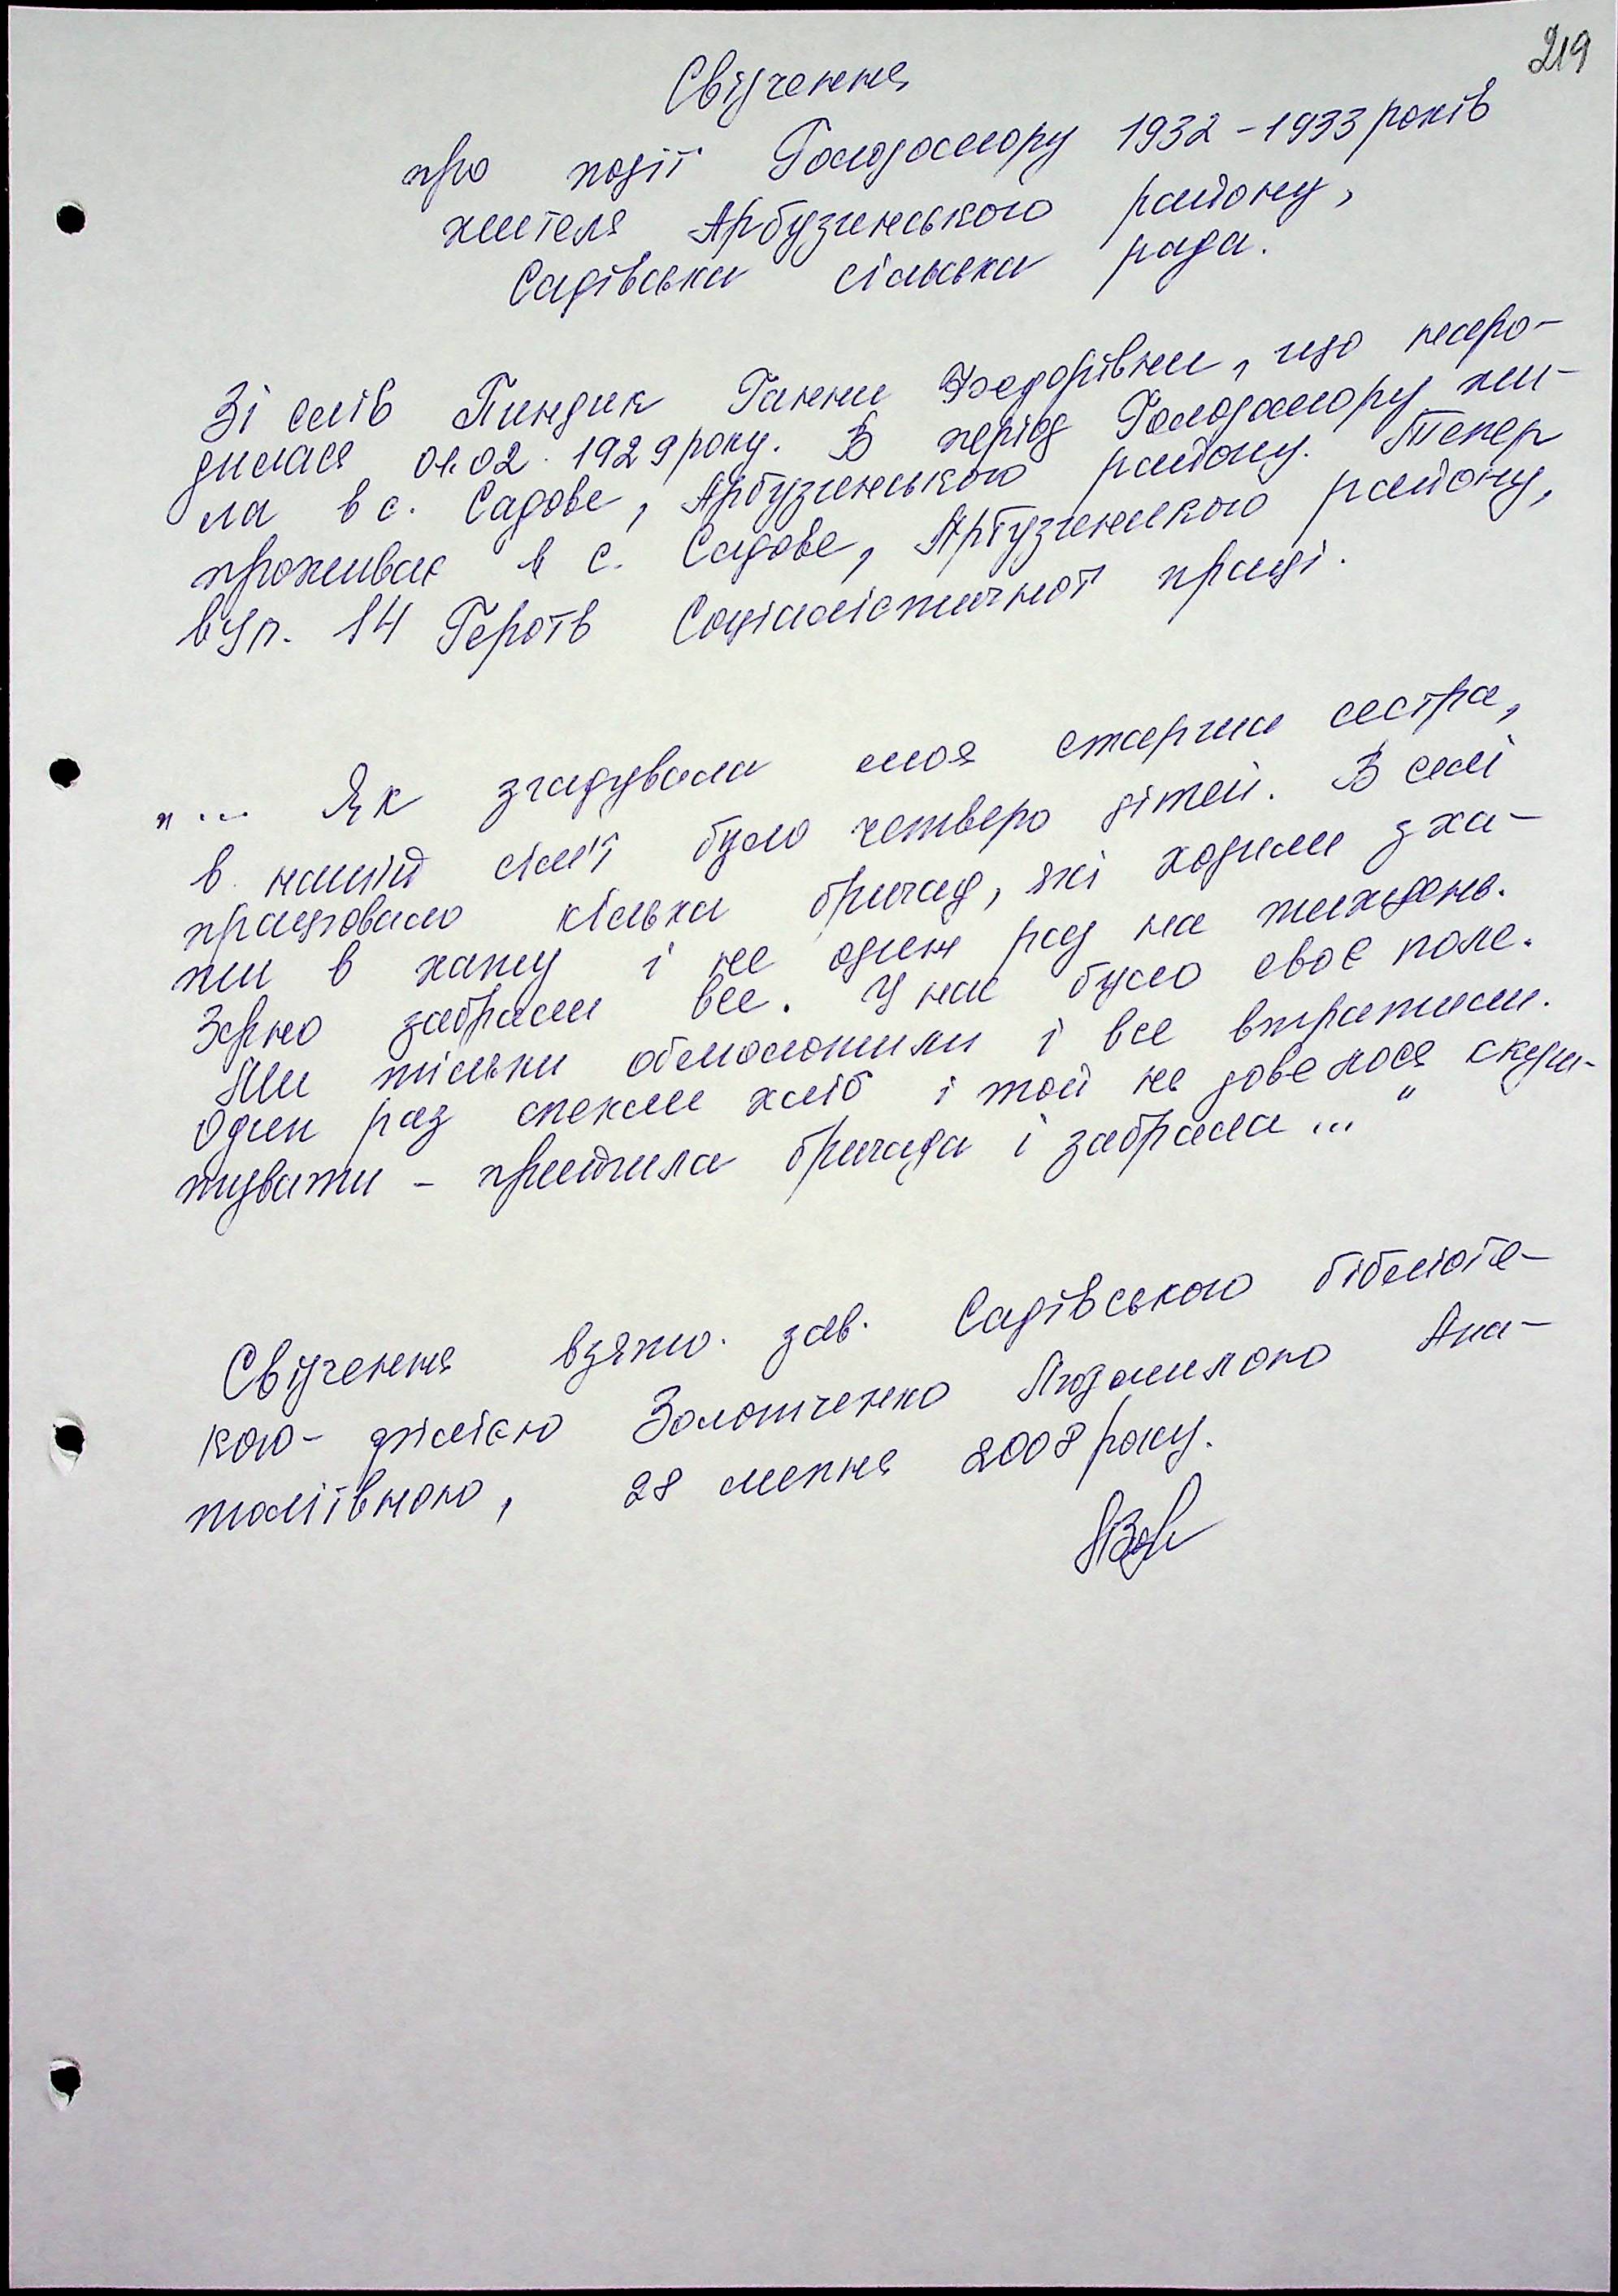 219
Свідчення
про події Голодомору 1932-1933 років
жителя Арбузинського району,
Садівська сільська рада.
Зі слів Пиндик Ганни Федорівни, що наро-
дилася 01.02.1929 року. В період Голодомору жи-
ла в с. Садове, Арбузинського району. Тепер
проживає в с. Садове, Арбузинського району,
вул. 14 Героїв Соціалістичної праці.
"... Як згадувала моя старша сестра,
в нашій сім'ї було четверо дітей. В селі
працювало кілька бригад, які ходили з ха-
ти в хату і не один раз на тиждень.
Зерно забрали все. У нас було своє поле.
Ми тільки обмолотили і все втратили.
Один раз спекли хліб і той не довелося скуш-
тувати - прийшла бригада і забрала ..."
Свідчення взято зав. Садівського бібліоте-
кою- філією Золотченко Людмилою Ана-
толіївною, 28 липня 2008 року.